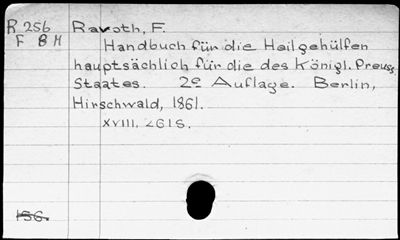 R 256 Ravoth, F.
F BM
Handbuch für die Heilgehülfen
hauptsächlich für die des Königl. Preuss.
Staates. 2e Auflage. Berlin,
Hirschwald, 1861.
XVIII, 261S.
156.